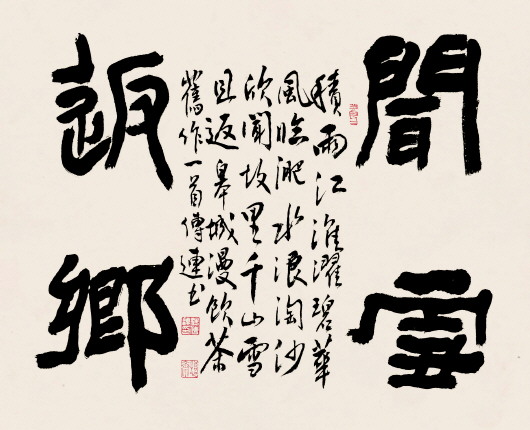 聞雪
積雨江淮濯碧華
風臨淝水浪淘沙
欣聞故里千山雪
且返皋城漫飲茶
舊作一首傅連書
返鄉